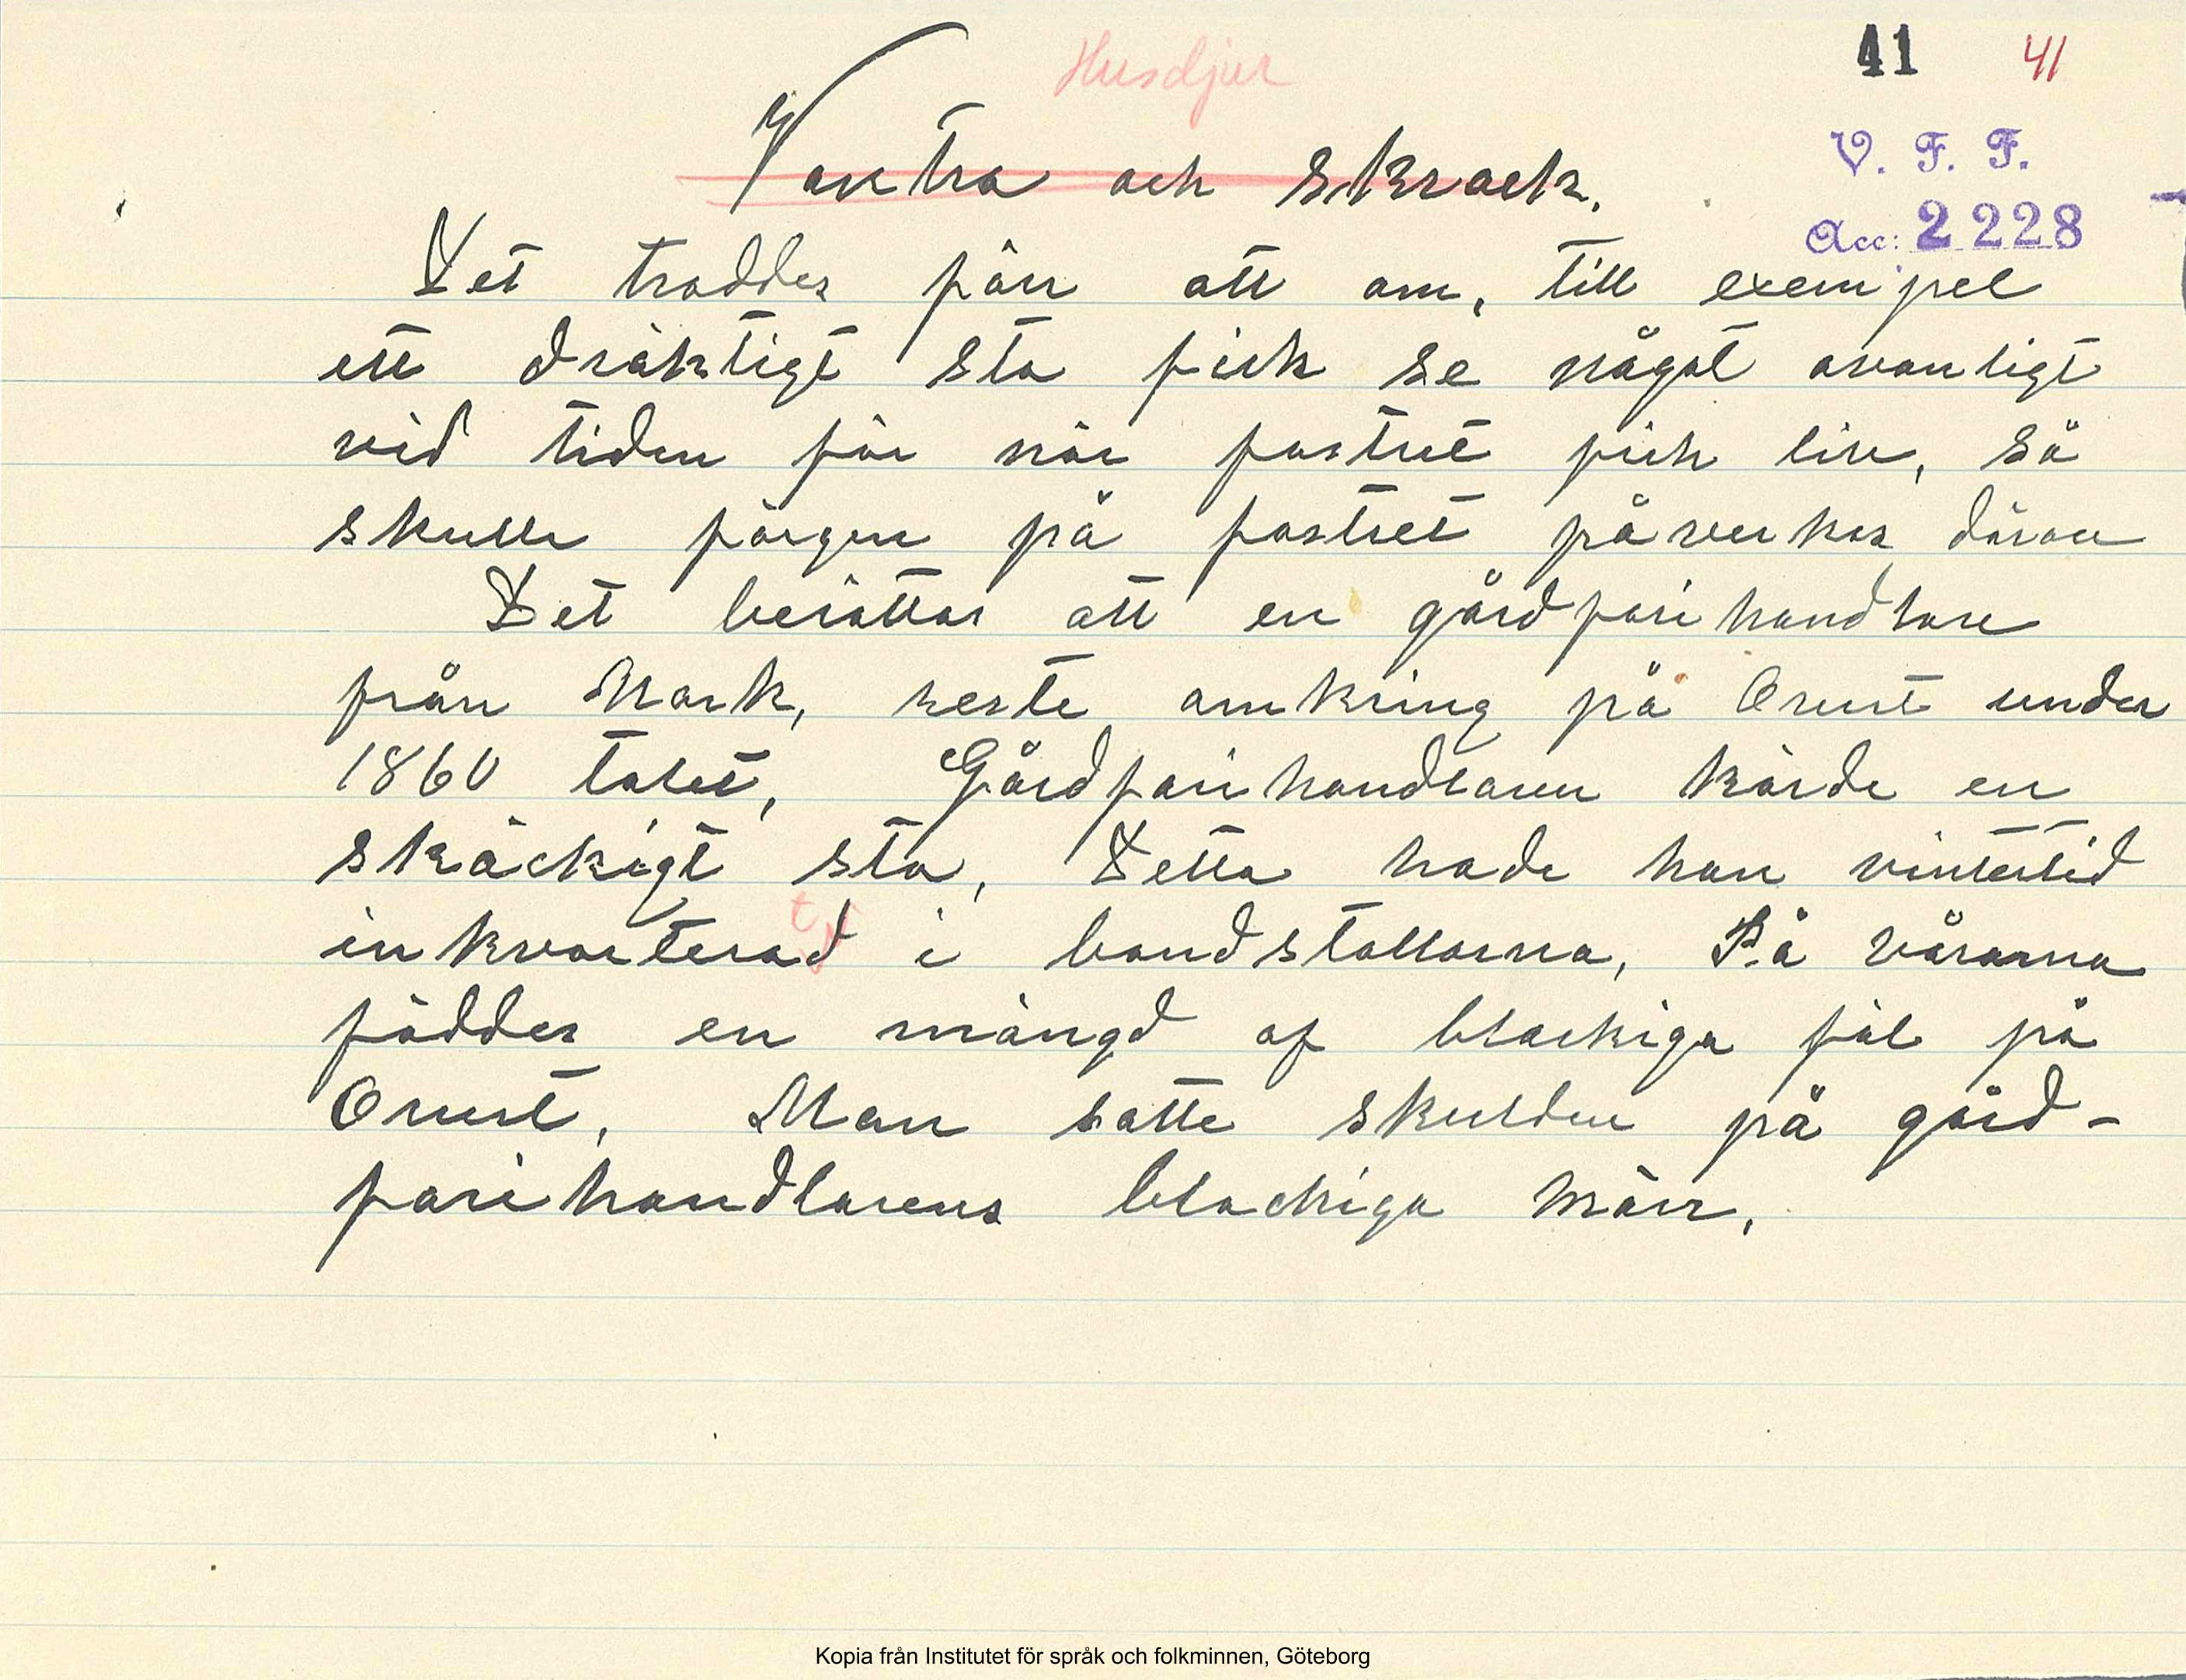 Husdjur
41 41
V. F. F.
Vantra och skrock.
Acc: 2228
Det troddes förr att om, till exempel
ett dräktigt sto fick se något ovanligt
vid tiden för när fostret fick liv, så
skulle färgen på fostret påverkas därav
Det berättas att en gårdfarihandlare
från Mark, reste omkring på Orust under
1860 talet, Gårdfarihandlaren körde en
skäckigt sto, Detta hade han vintertid
inkvarterad t i bondstallarna, På vårarna
föddes en mängd af blackiga föl på
Orust, Man satte skulden på gård-
farihandlarens blackiga märr,
Kopia från Institutet för språk och folkminnen, Göteborg